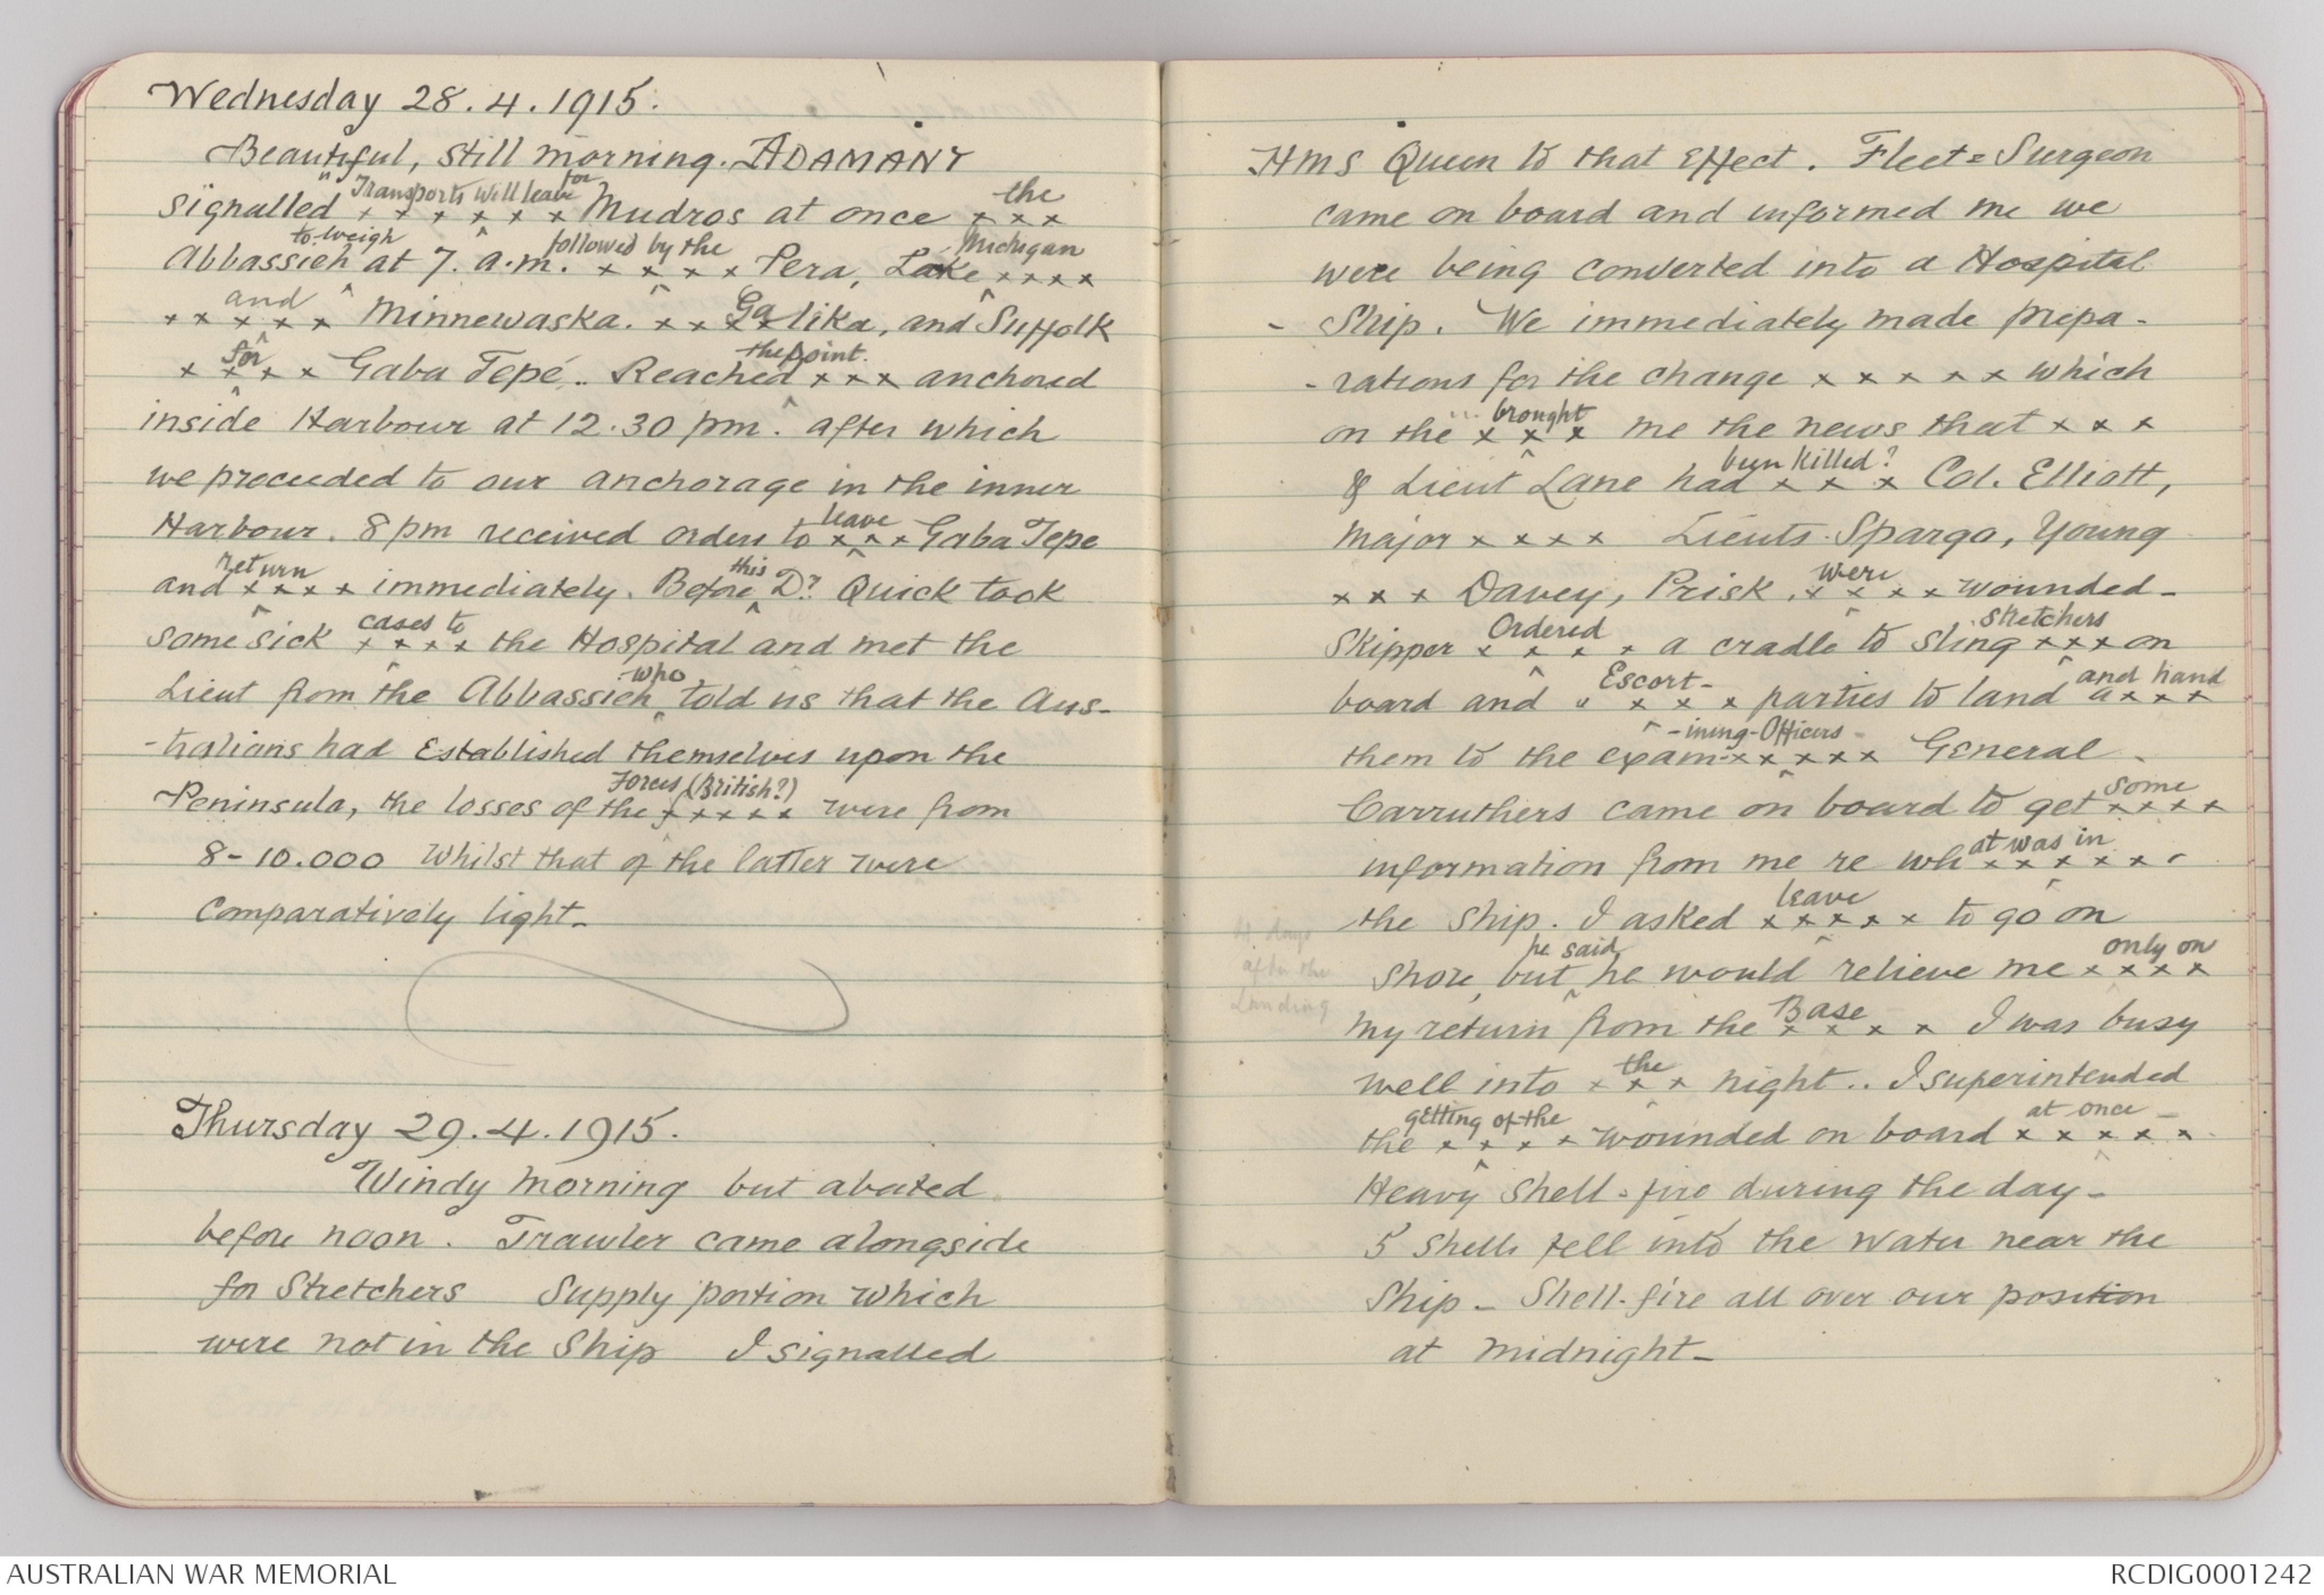 Wednesday 28.4.1915.
Beautiful, still morning. ADAMANT
" Transports will leave for the
signalled x x x x x x Mudros at once x x x
to weigh followed by the Michigan
Abbassieh at 7. a.m. x x x x Pera, Lake x x x x
and Ga
x x x x x Minnewaska. x x x x lika, and Suffolk
for the point.
x x x x Gaba Tepé.. Reached x x x anchored
inside Harbour at 12.30 pm. after which
we proceeded to our anchorage in the inner
leave
Harbour. 8 pm received orders to x x x Gaba Tepe
return this
and x x x x immediately. Before Dr. Quick took
cases to
some sick x x x x the Hospital and met the
who
Lieut from the Abbassieh told us that the Aus-
-tralians had Established themselves upon the
Forces (British?)
Peninsula, the losses of the x x x x x were from
8-10.000 Whilst that of the latter were
Comparatively light-
Thursday 29.4.1915.
Windy morning but abated
before noon. Trawler came alongside
for Stretchers Supply portion which
were not in the Ship I signalled
HMS Queen to that Effect. Fleet=Surgeon
came on board and informed me we
were being converted into a Hospital
- Ship. We immediately made prepa-
-rations for the change x x x x x which
... brought
on the x x x me the news that x x x
been killed?
& Lieut Lane had x x x Col. Elliott,
Major x x x x Lieuts. Spargo, Young
were
x x x Davey, Prisk. x x x x wounded-
Ordered Stretchers
Skipper x x x x a cradle to sling x x x on
Escort- and hand
board and " x x x parties to land a x x x
-ining-Officers-
them to the exam-x x x x x General -
some
Carruthers came on board to get x x x x
at was in
information from me re wh x x x x x
leave
the Ship. I asked x x x x x to go on
he said only on
4 days
after the
Landing
Shore, but he would relieve me x x x x
Base
my return from the x x x x I was busy
the
well into x x x night.. I superintended
getting of the at once -
the x x x x wounded on board x x x x x
Heavy Shell-fire during the day-
5 Shells fell into the Water near the
Ship - Shell-fire all over our position
at midnight-
AUSTRALIAN WAR MEMORIAL
RCDIG0001242